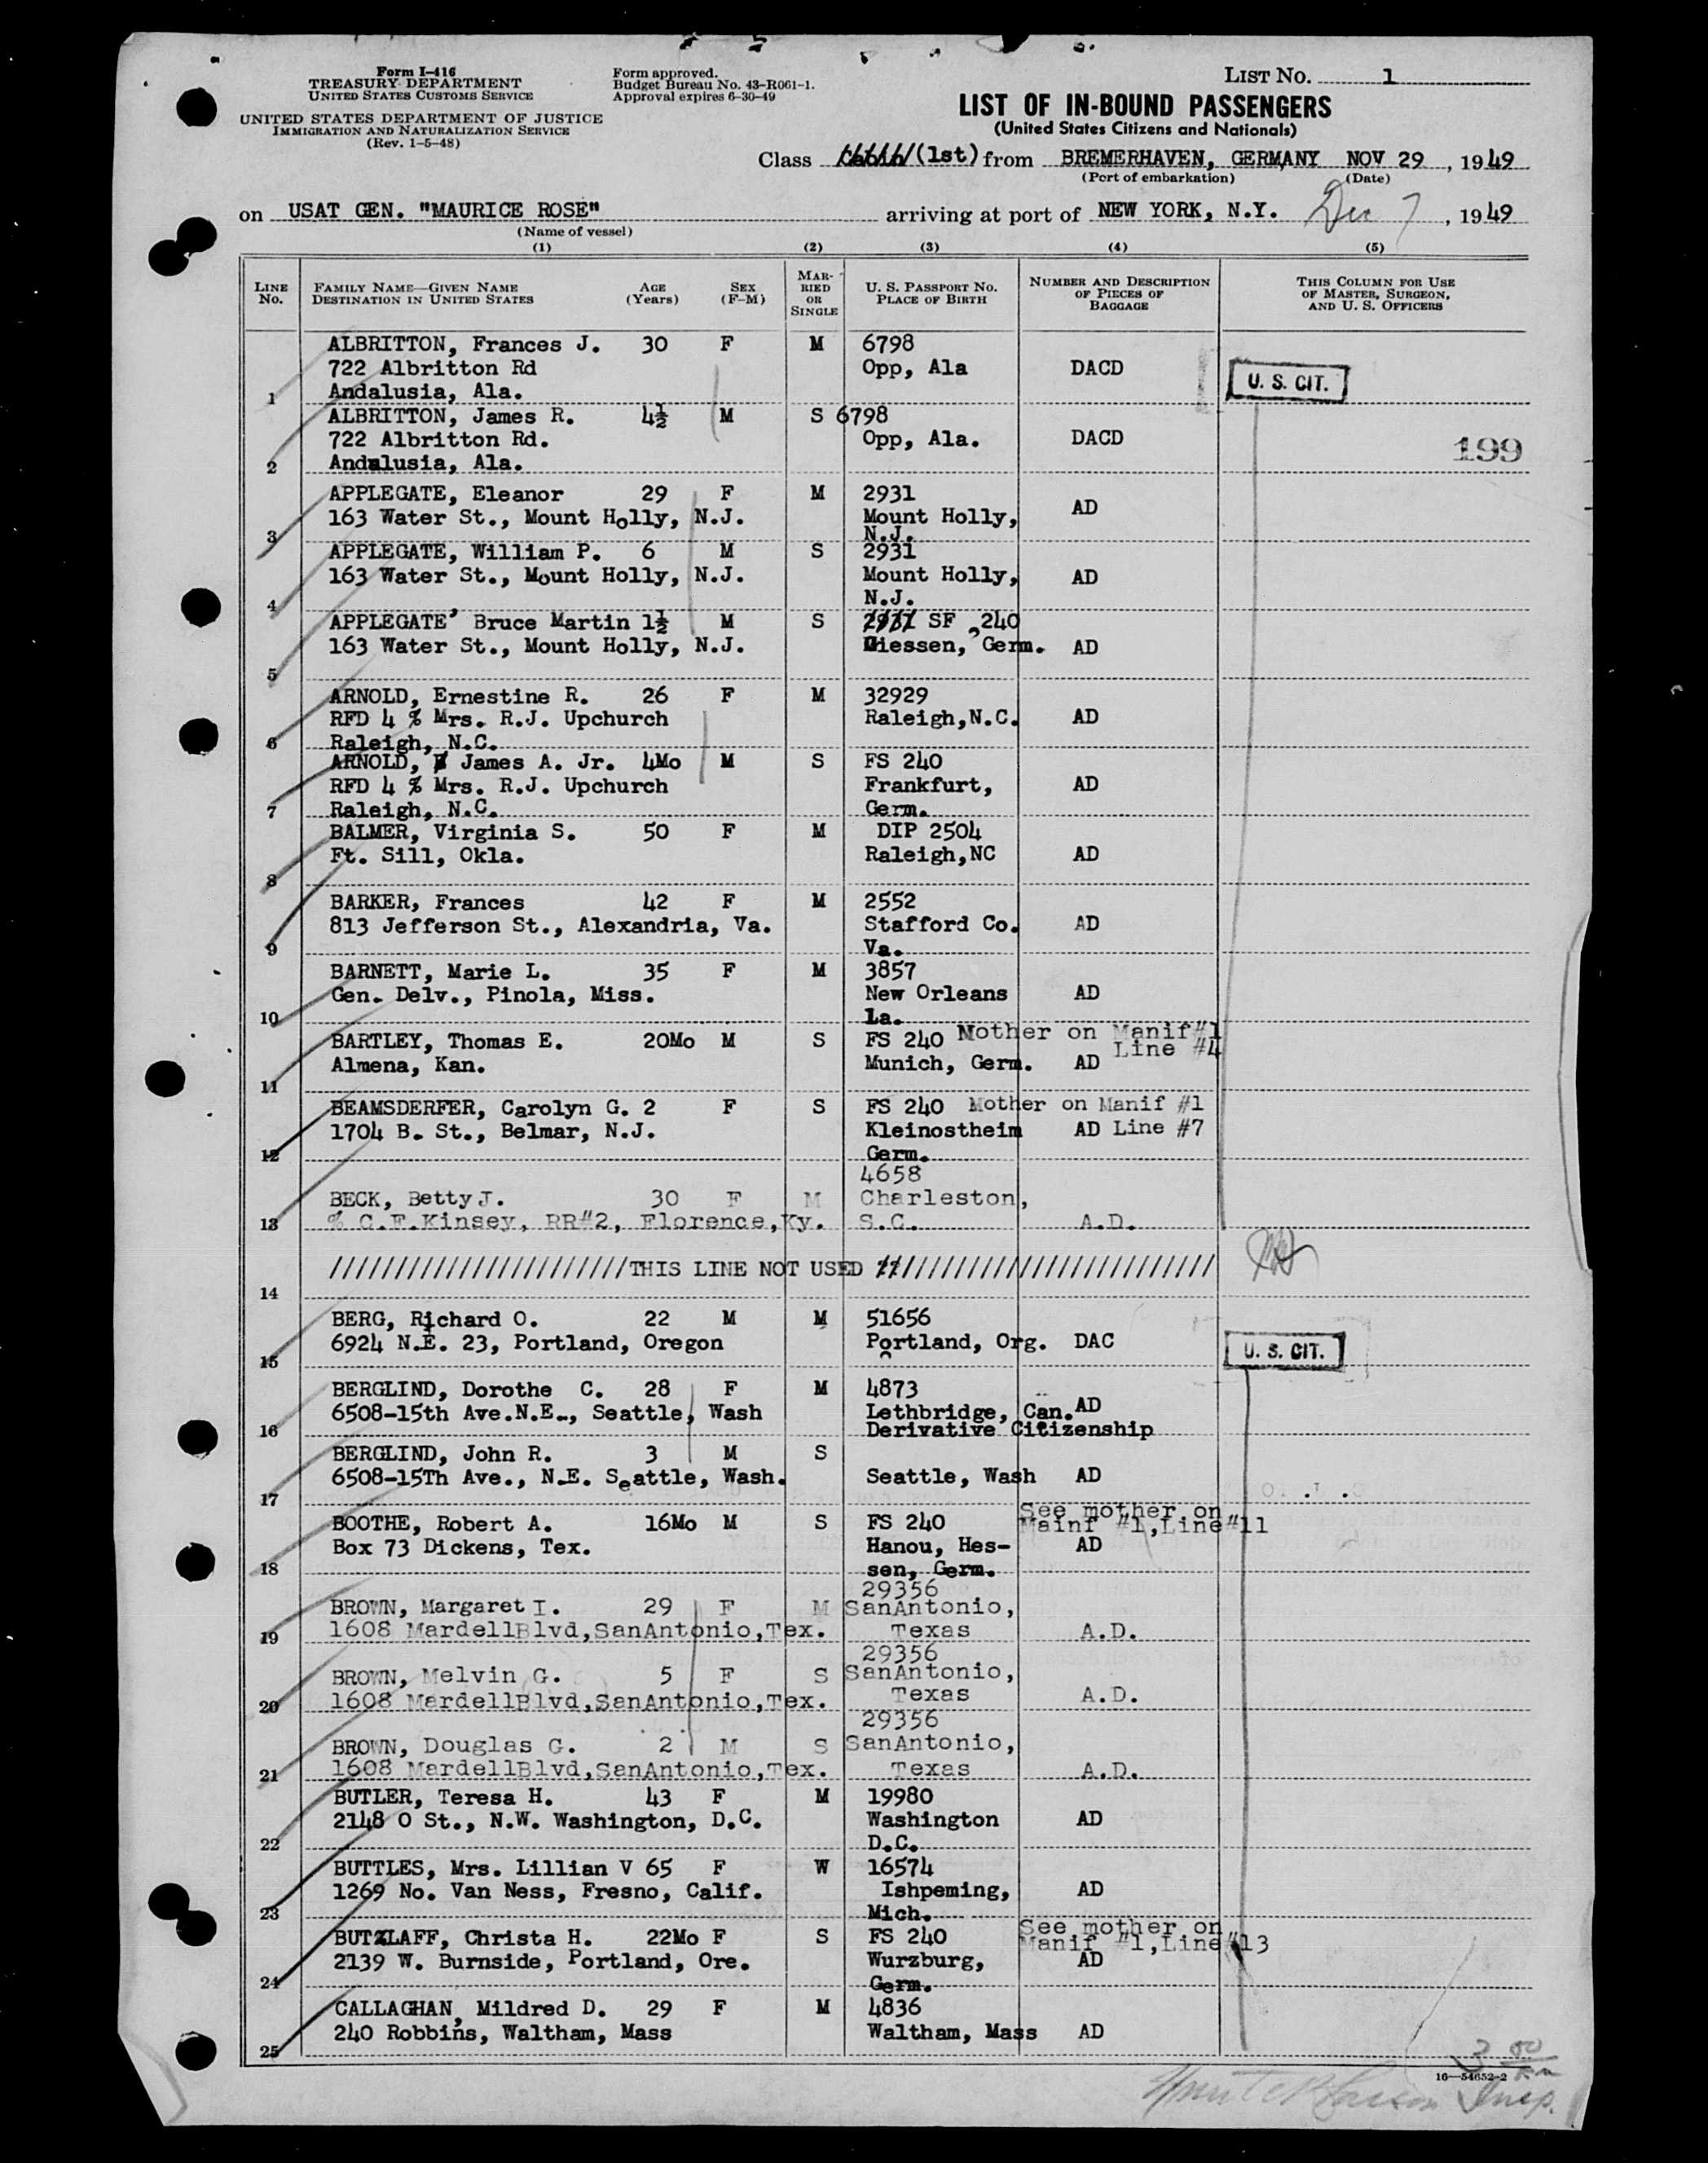 Form I-416
TREASURY DEPARTMENT
UNITED STATES CUSTOMS SERVICE
UNITED STATES DEPARTMENT OF JUSTICE
IMMIGRATION AND NATURALIZATION SERVICE
(Rev. 1-5-48)
Form approved.
Budget Bureau No. 43-R061-1.
Approval expires 6-30-49
LIST NO. 1
LIST OF IN-BOUND PASSENGERS
(United States Citizens and Nationals)
Class (1st) from BREMERHAVEN, GERMANY NOV 29, 1949
(Port of embarkation) (Date)
on USAT GEN. "MAURICE ROSE" arriving at port of NEW YORK, N.Y. Dec 7, 1949
(Name of vessel)
(1) (2) (3) (4) (5)
LINE No. FAMILY NAME—GIVEN NAME DESTINATION IN UNITED STATES AGE (Years) SEX (F-M) MARRIED OR SINGLE U. S. PASSPORT NO. PLACE OF BIRTH NUMBER AND DESCRIPTION OF PIECES OF BAGGAGE THIS COLUMN FOR USE OF MASTER, SURGEON, AND U. S. OFFICERS
ALBRITTON, Frances J. 30 F M 6798
722 Albritton Rd Opp, Ala DACD U. S. CIT.
1 Andalusia, Ala.
ALBRITTON, James R. 4½ M S 6798
722 Albritton Rd. Opp, Ala. DACD 199
2 Andalusia, Ala.
APPLEGATE, Eleanor 29 F M 2931
163 Water St., Mount Holly, N.J. Mount Holly, AD
3 N.J.
APPLEGATE, William P. 6 M S 2931
163 Water St., Mount Holly, N.J. Mount Holly, AD
4 N.J.
APPLEGATE' Bruce Martin 1½ M S 2931 SF 240
163 Water St., Mount Holly, N.J. Giessen, Germ. AD
5
ARNOLD, Ernestine R. 26 F M 32929
RFD 4 % Mrs. R.J. Upchurch Raleigh,N.C. AD
6 Raleigh, N.C.
ARNOLD, James A. Jr. 4Mo M S FS 240
RFD 4 % Mrs. R.J. Upchurch Frankfurt, AD
7 Raleigh, N.C. Germ.
BALMER, Virginia S. 50 F M DIP 2504
Ft. Sill, Okla. Raleigh,NC AD
8
BARKER, Frances 42 F M 2552
813 Jefferson St., Alexandria, Va. Stafford Co. AD
9 Va.
BARNETT, Marie L. 35 F M 3857
Gen. Delv., Pinola, Miss. New Orleans AD
10 La.
BARTLEY, Thomas E. 20Mo M S FS 240 Mother on Manif#1
Almena, Kan. Munich, Germ. AD Line #4
11
BEAMSDERFER, Carolyn G. 2 F S FS 240 Mother on Manif #1
1704 B. St., Belmar, N.J. Kleinostheim AD Line #7
12 Germ.
4658
BECK, Betty J. 30 F M Charleston,
13 % C.F.Kinsey, RR#2, Florence,Ky. S.C. A.D.
///////////////////////THIS LINE NOT USED //////////////////////////
14
BERG, Richard O. 22 M M 51656
6924 N.E. 23, Portland, Oregon Portland, Org. DAC U. S. CIT.
15
BERGLIND, Dorothe C. 28 F M 4873
6508-15th Ave.N.E., Seattle, Wash Lethbridge, Can. AD
16 Derivative Citizenship
BERGLIND, John R. 3 M S
6508-15Th Ave., N.E. Seattle, Wash. Seattle, Wash AD
17
BOOTHE, Robert A. 16Mo M S FS 240 See mother on Mainf #1,Line#11
Box 73 Dickens, Tex. Hanou, Hes- AD
18 sen, Germ.
29356
BROWN, Margaret I. 29 F M SanAntonio,
19 1608 MardellBlvd,SanAntonio,Tex. Texas A.D.
29356
BROWN, Melvin G. 5 F S SanAntonio,
20 1608 MardellBlvd,SanAntonio,Tex. Texas A.D.
29356
BROWN, Douglas G. 2 M S SanAntonio,
21 1608 MardellBlvd,SanAntonio,Tex. Texas A.D.
BUTLER, Teresa H. 43 F M 19980
2148 O St., N.W. Washington, D.C. Washington AD
22 D.C.
BUTTLES, Mrs. Lillian V 65 F W 16574
1269 No. Van Ness, Fresno, Calif. Ishpeming, AD
23 Mich.
BUTZLAFF, Christa H. 22Mo F S FS 240 See mother on Manif #1,Line#13
2139 W. Burnside, Portland, Ore. Wurzburg, AD
24 Germ.
CALLAGHAN, Mildred D. 29 F M 4836
240 Robbins, Waltham, Mass Waltham, Mass AD
25
16—54652-2
Insp.